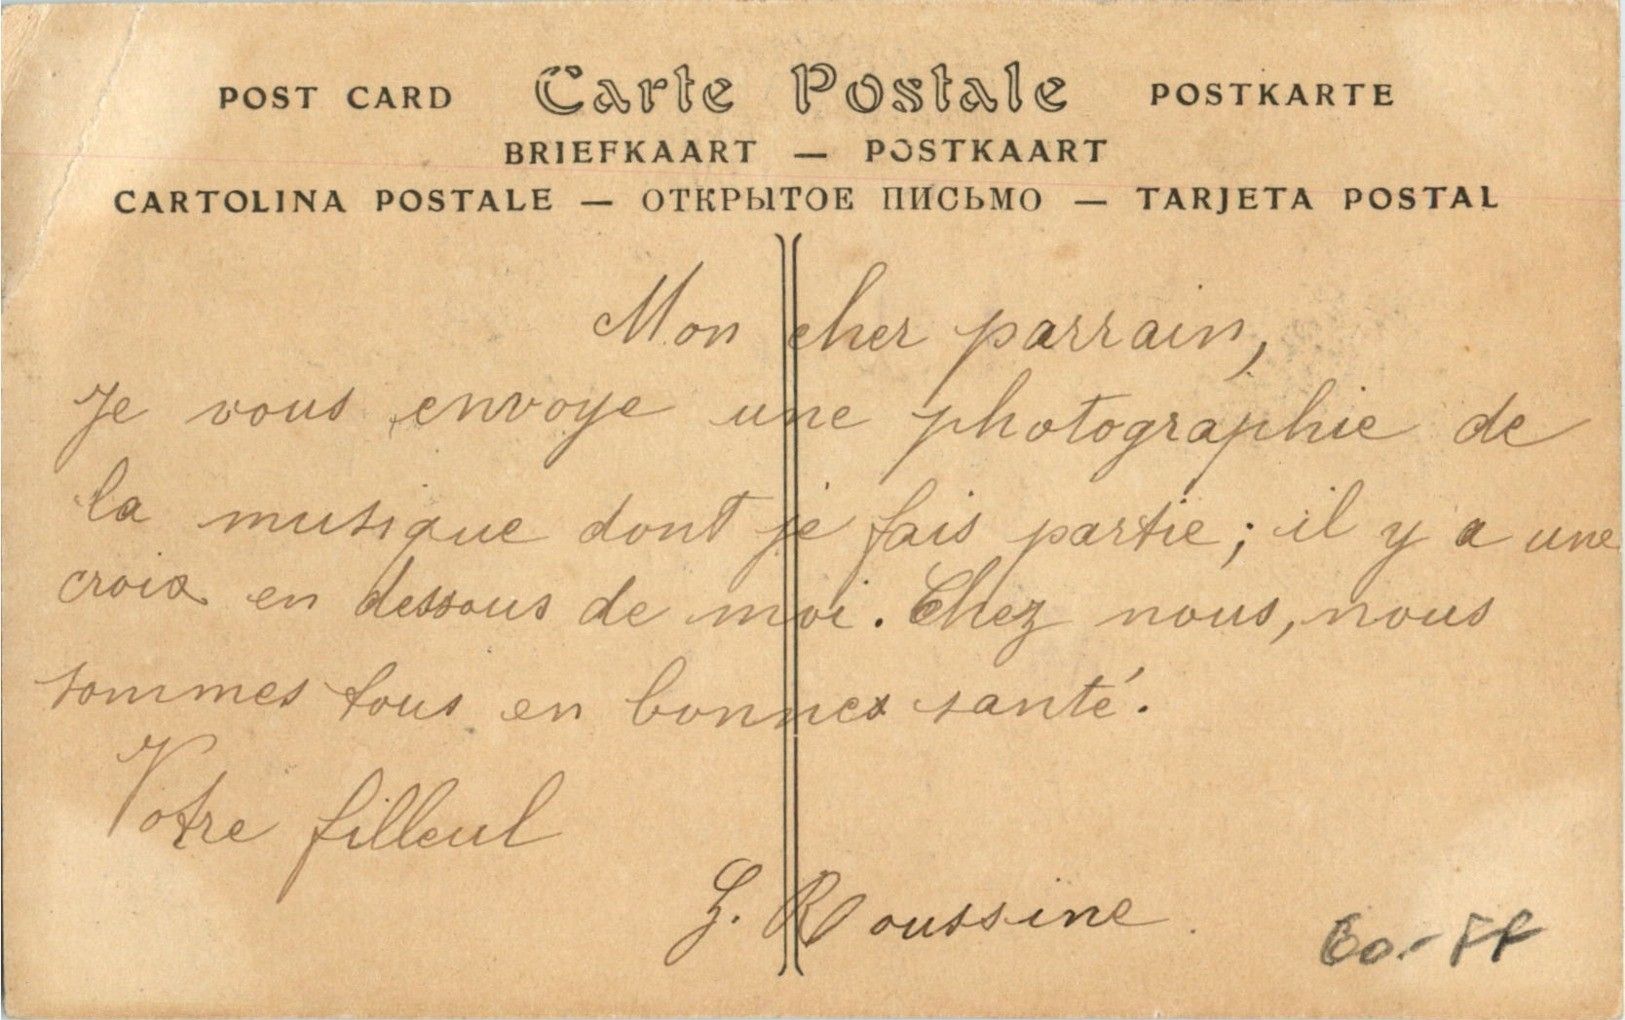 POST CARD Carte Postale POSTKARTE
BRIEFKAART — POSTKAART
CARTOLINA POSTALE — ОТКРЫТОЕ ПИСЬМО — TARJETA POSTAL
Mon cher parrain,
Je vous envoye une photographie de
la musique dont je fais partie; il y a une
croix en dessous de moi. Chez nous, nous
sommes tous en bonnes santé.
Votre filleul
Roussine
60.- FF